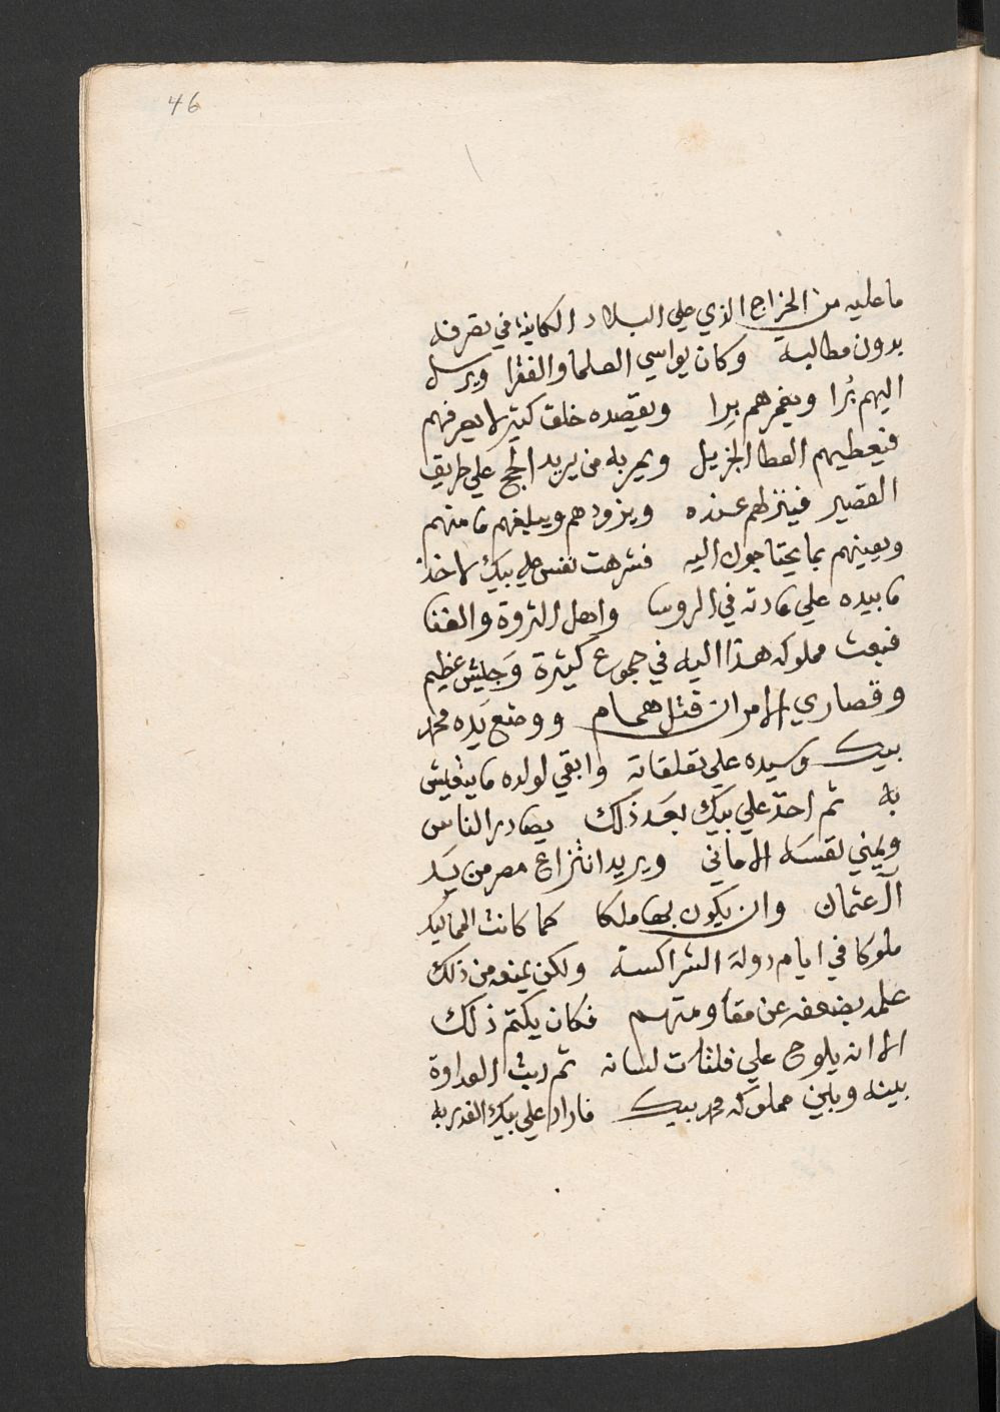 46
ما عليه من الخراج الذي علي البلاد الكاينة في تصرفه
بدون مطالبه وكان يواسي العلما والفقرا ويرسل
اليهم بُرا ويغمرهم بِرا ويقصده خلق كتير لا يعرفهم
فيعطيهم العطا الجزيل ويمر به من يريد الحج علي طريق
القصير فينزلهم عنده ويزودهم ويبلغهم مامنهم
ويعينهم بما يحتاجون اليه فشرهت نفس علي بيك لاخذ
ما بيده علي عادته في الروسا واهل الثروة والغنا
فبعث مملوكه هذا اليه في جموع كثيرة وَجيش عظيم
وقصاري الامر ان قتل همام ووضع يَده محمد
بيك وسيده علي تعلقاته وابقي لولده ما يتعيش
به ثم اخذ علي بيك بعَد ذلك يصادر الناس
ويمني نفسَه الاماني ويريد انتزاع مصر من يَد
آل عثمان وان يكون بها ملكا كما كانت المماليك
ملوكا في ايام دولة الشراكسة ولكن يمنعه من ذلك
علمه بضعفه عن مقاومتهم فكان يكتم ذلك
الا انه يلوح علي فلتات لسانه ثم دبت العداوة
بينه وبين مملوكه محمد بيك فاراد علي بيك الغدر به